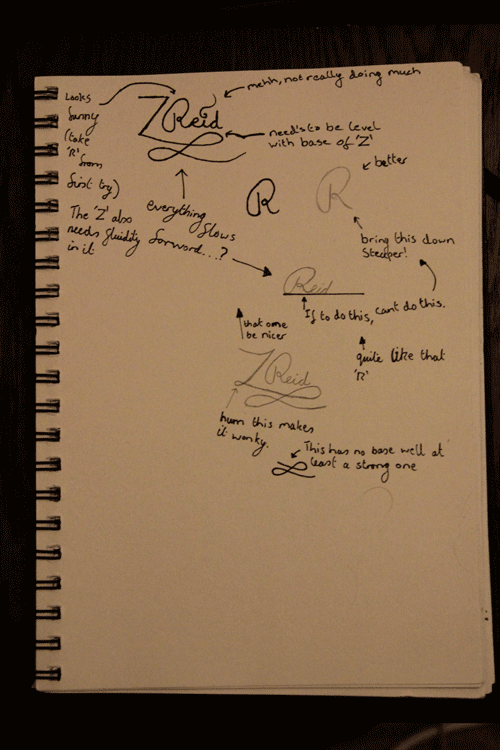 Looks
funny
(take
'R' from
first try)
The 'Z' also
needs fluidity
in it
ZReid
mehh, not really doing much
need's to be level
with base of 'Z'
everything
flows
forward...?
R
R
better
bring this down
Steeper!
Reid
If to do this, cant do this.
that one
be nicer
quite like that
'R'
ZReid
hum this makes
it wonky.
This has no base well at
least a strong one